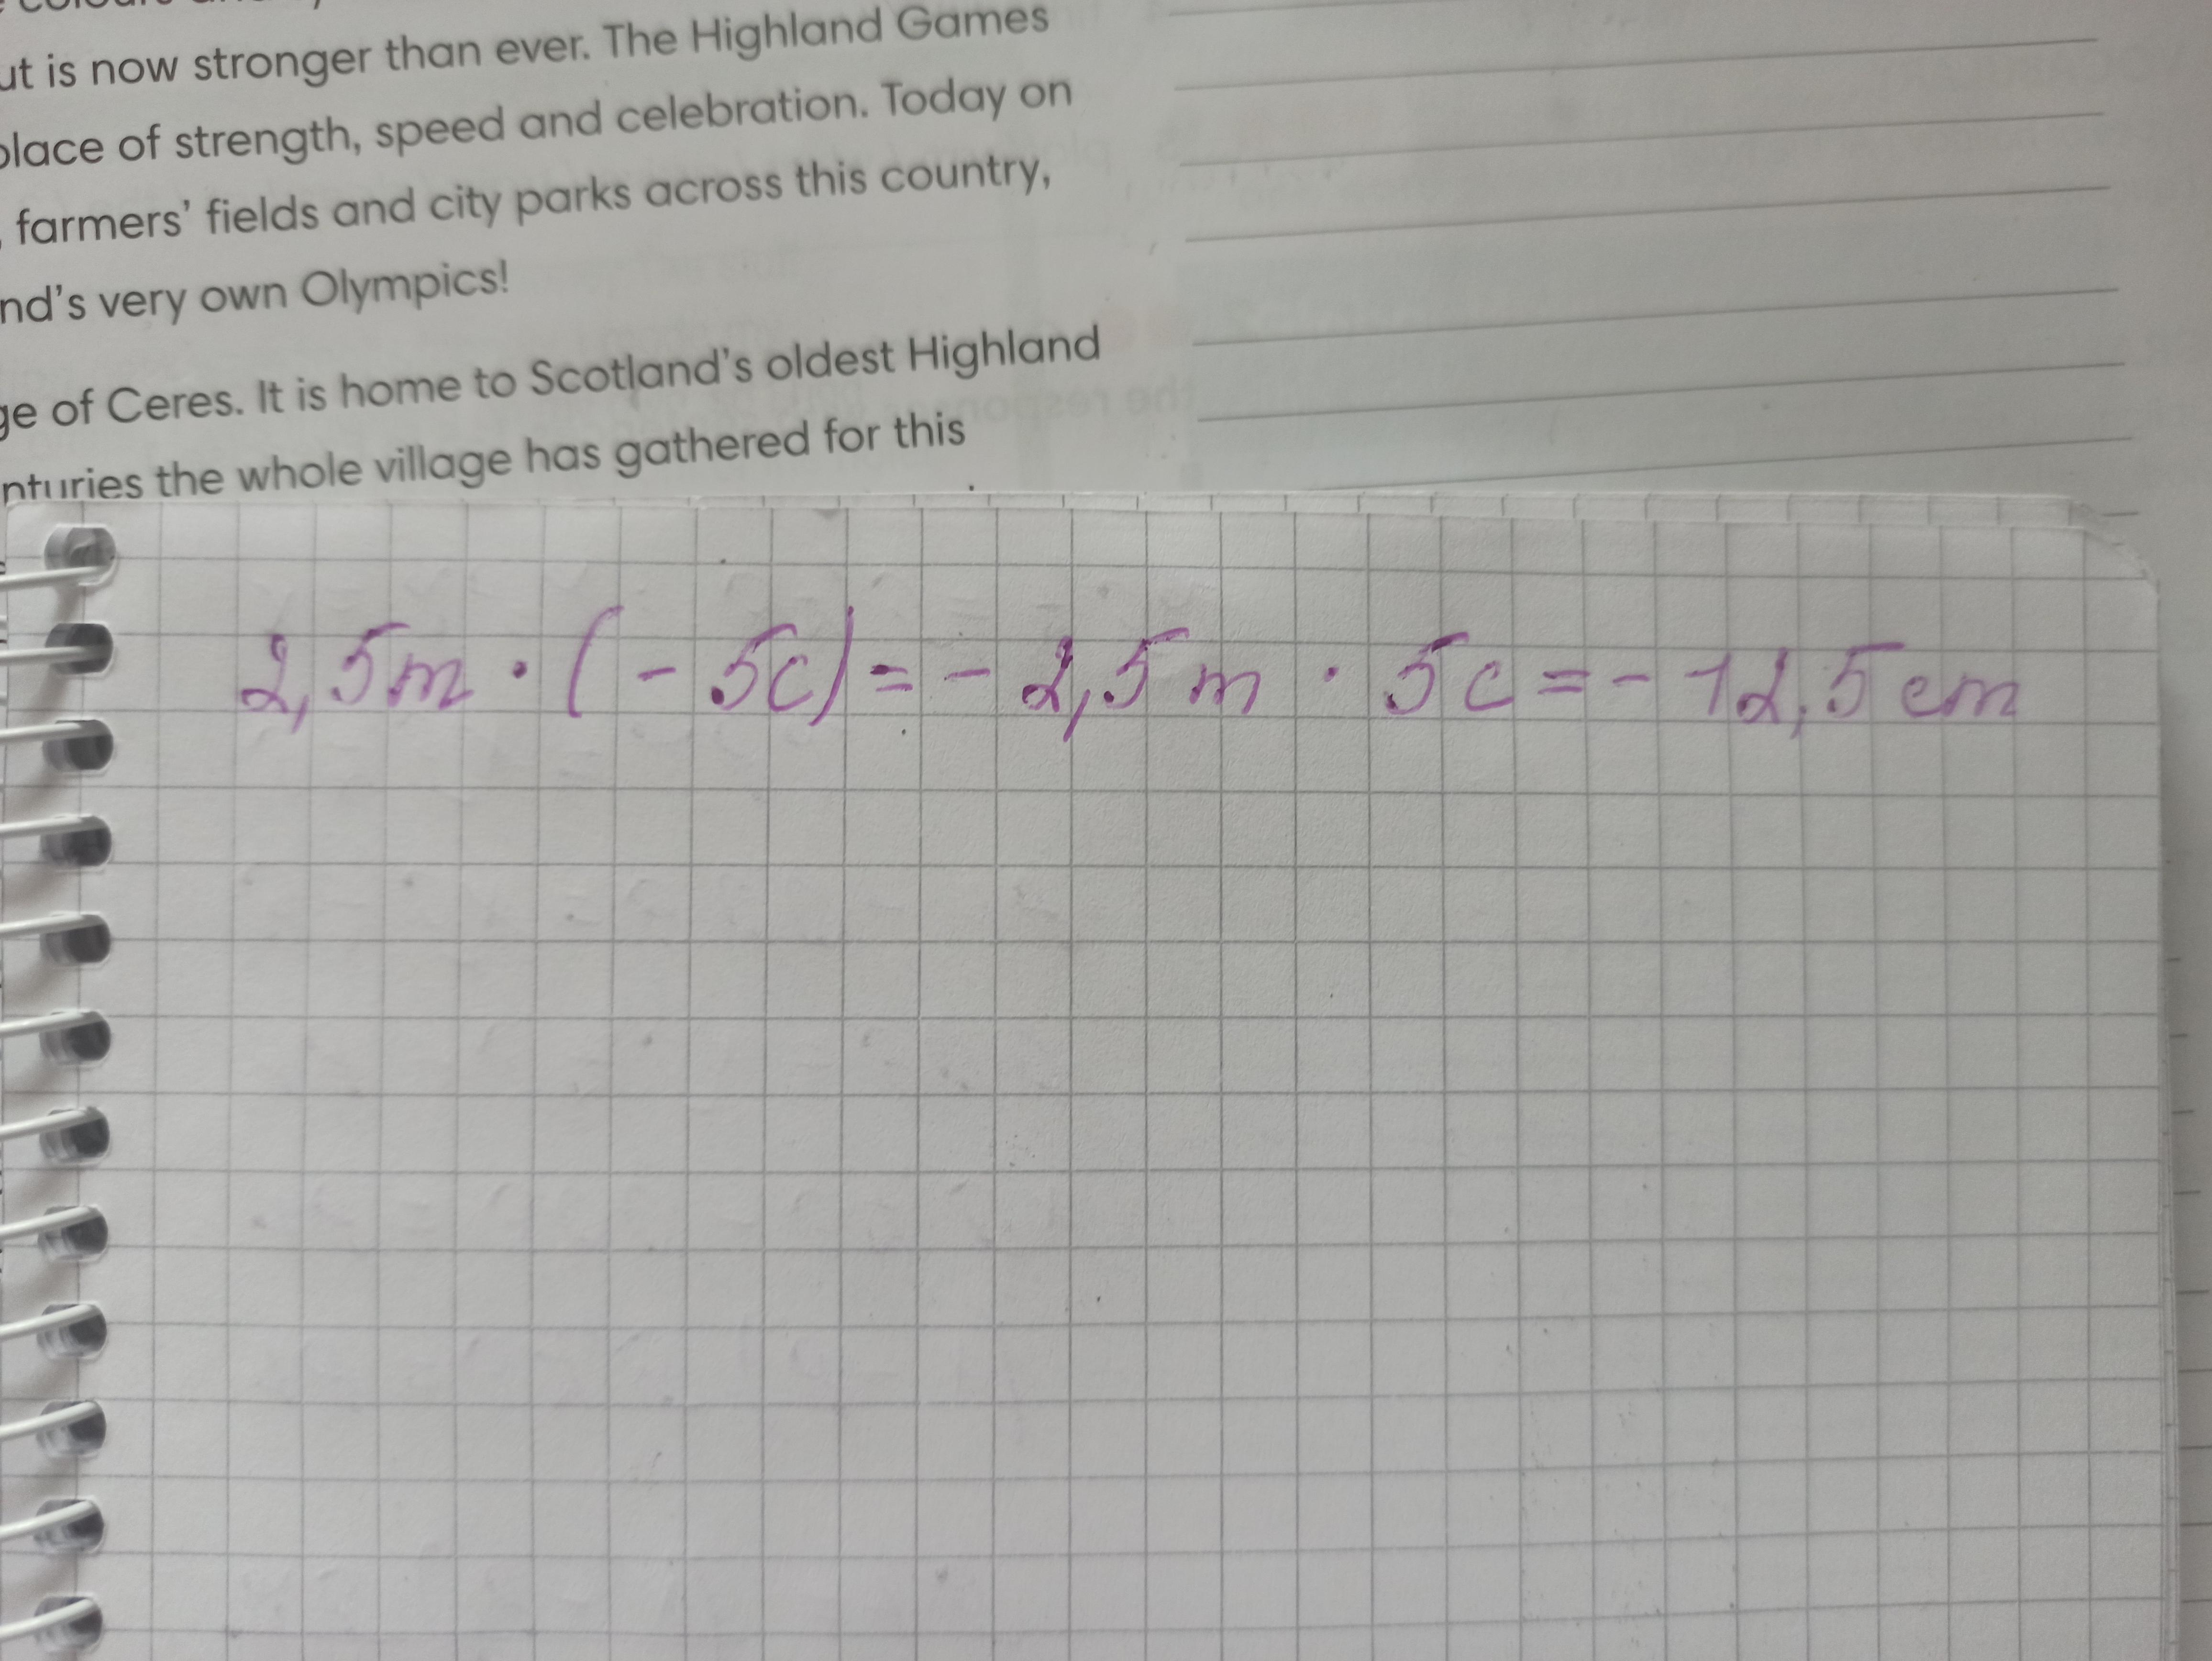 ut is now stronger than ever. The Highland Games
place of strength, speed and celebration. Today on
, farmers' fields and city parks across this country,
nd's very own Olympics!
ge of Ceres. It is home to Scotland's oldest Highland
nturies the whole village has gathered for this
2,5m · (- 5c) = - 2,5m · 5c = - 12,5cm